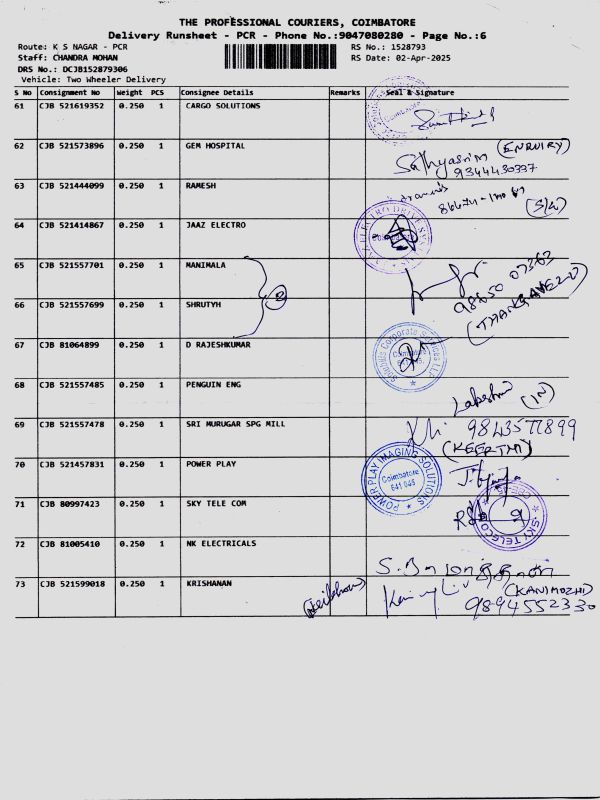 THE PROFESSIONAL COURIERS, COIMBATORE
Delivery Runsheet - PCR - Phone No.:9047080280 - Page No.:6
Route: K S NAGAR - PCR
RS No.: 1528793
Staff: CHANDRA MOHAN
RS Date: 02-Apr-2025
DRS No.: DCJB152879306
Vehicle: Two Wheeler Delivery
S No Consignment No Weight PCS Consignee Details Remarks Seal & Signature
61 CJB 521619352 0.250 1 CARGO SOLUTIONS
62 CJB 521573896 0.250 1 GEM HOSPITAL (ENQUIRY)
9344430337
63 CJB 521444099 0.250 1 RAMESH
(S/W)
64 CJB 521414867 0.250 1 JAAZ ELECTRO
65 CJB 521557701 0.250 1 MANIMALA
2
98650 07363
66 CJB 521557699 0.250 1 SHRUTYH
(THANGAVELU)
67 CJB 81064899 0.250 1 D RAJESHKUMAR
Corporate Services LLP
68 CJB 521557485 0.250 1 PENGUIN ENG
Lakshmi (IN)
69 CJB 521557478 0.250 1 SRI MURUGAR SPG MILL
9843577899
(KEERTHI)
70 CJB 521457831 0.250 1 POWER PLAY
POWER PLAY IMAGING SOLUTIONS
Coimbatore
641 045
71 CJB 80997423 0.250 1 SKY TELE COM
SKY TELECOM
72 CJB 81005410 0.250 1 NK ELECTRICALS
73 CJB 521599018 0.250 1 KRISHANAN
(KANIMOZHI)
9894552330